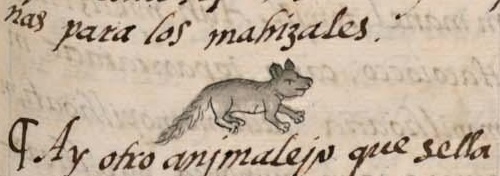 ñas para los mahizales.
¶ Ay otro animalejo que sella